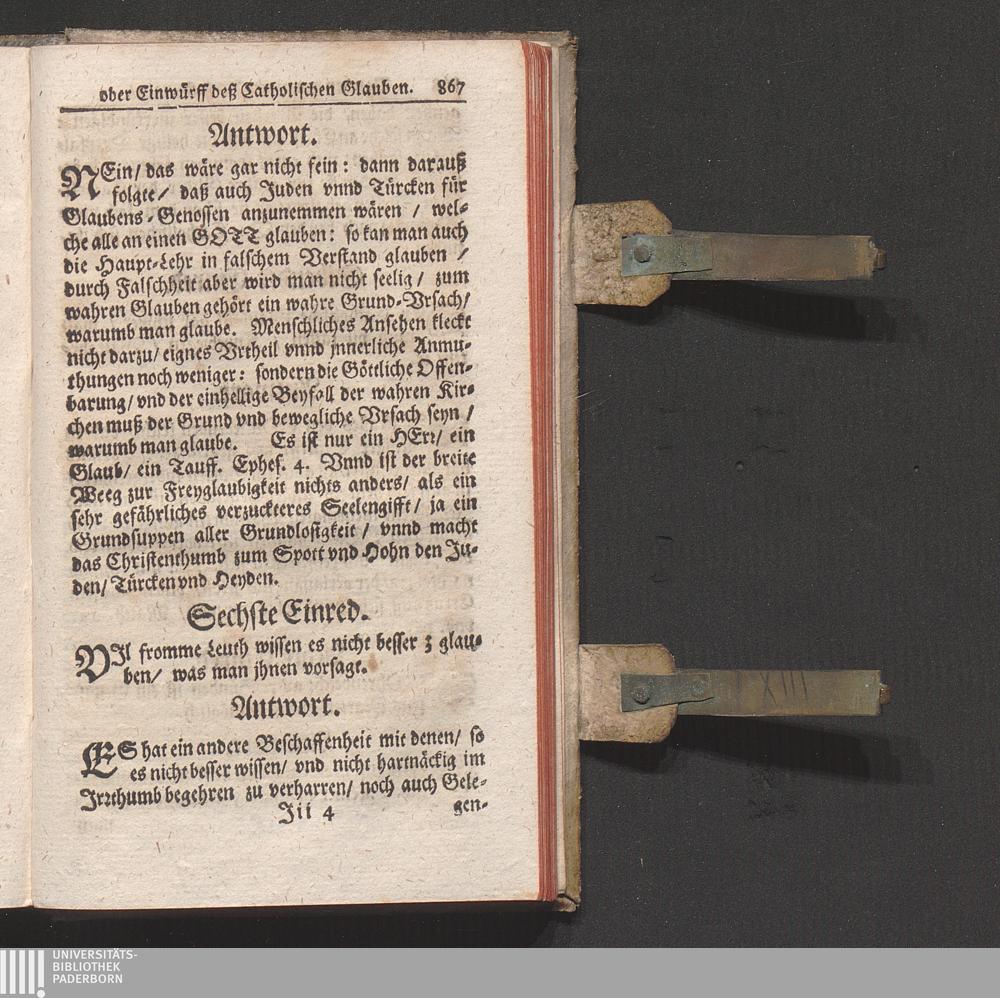 oder Einwürff deß Catholischen Glauben. 867
Antwort.
NEin/ das wäre gar nicht fein: dann darauß
folgte/ daß auch Juden vnnd Türcken für
Glaubens-Genossen anzunemmen wären / wel-
che alle an einen GOTT glauben: so kan man auch
die Haupt-Lehr in falschem Verstand glauben /
durch Falschheit aber wird man nicht seelig/ zum
wahren Glauben gehört ein wahre Grund-Vrsach/
warumb man glaube. Menschliches Ansehen kleckt
nicht darzu/ eignes Vrtheil vnnd jnnerliche Anmu-
thungen noch weniger: sondern die Göttliche Offen-
barung/ vnd der einhellige Beyfall der wahren Kir-
chen muß der Grund vnd bewegliche Vrsach seyn /
warumb man glaube. Es ist nur ein HErr/ ein
Glaub/ ein Tauff. Ephes. 4. Vnnd ist der breite
Weeg zur Freyglaubigkeit nichts anders/ als ein
sehr gefährliches verzuckteres Seelengifft/ ja ein
Grundsuppen aller Grundlosigkeit / vnnd macht
das Christenthumb zum Spott vnd Hohn den Ju-
den/ Türcken vnd Heyden.
Sechste Einred.
VIl fromme Leuth wissen es nicht besser z glau-
ben/ was man jhnen vorsagt.
Antwort.
ES hat ein andere Beschaffenheit mit denen/ so
es nicht besser wissen/ vnd nicht hartnäckig im
Jrrthumb begehren zu verharren/ noch auch Gele-
Jii 4 gen-
XIII
UNIVERSITÄTS-
BIBLIOTHEK
PADERBORN